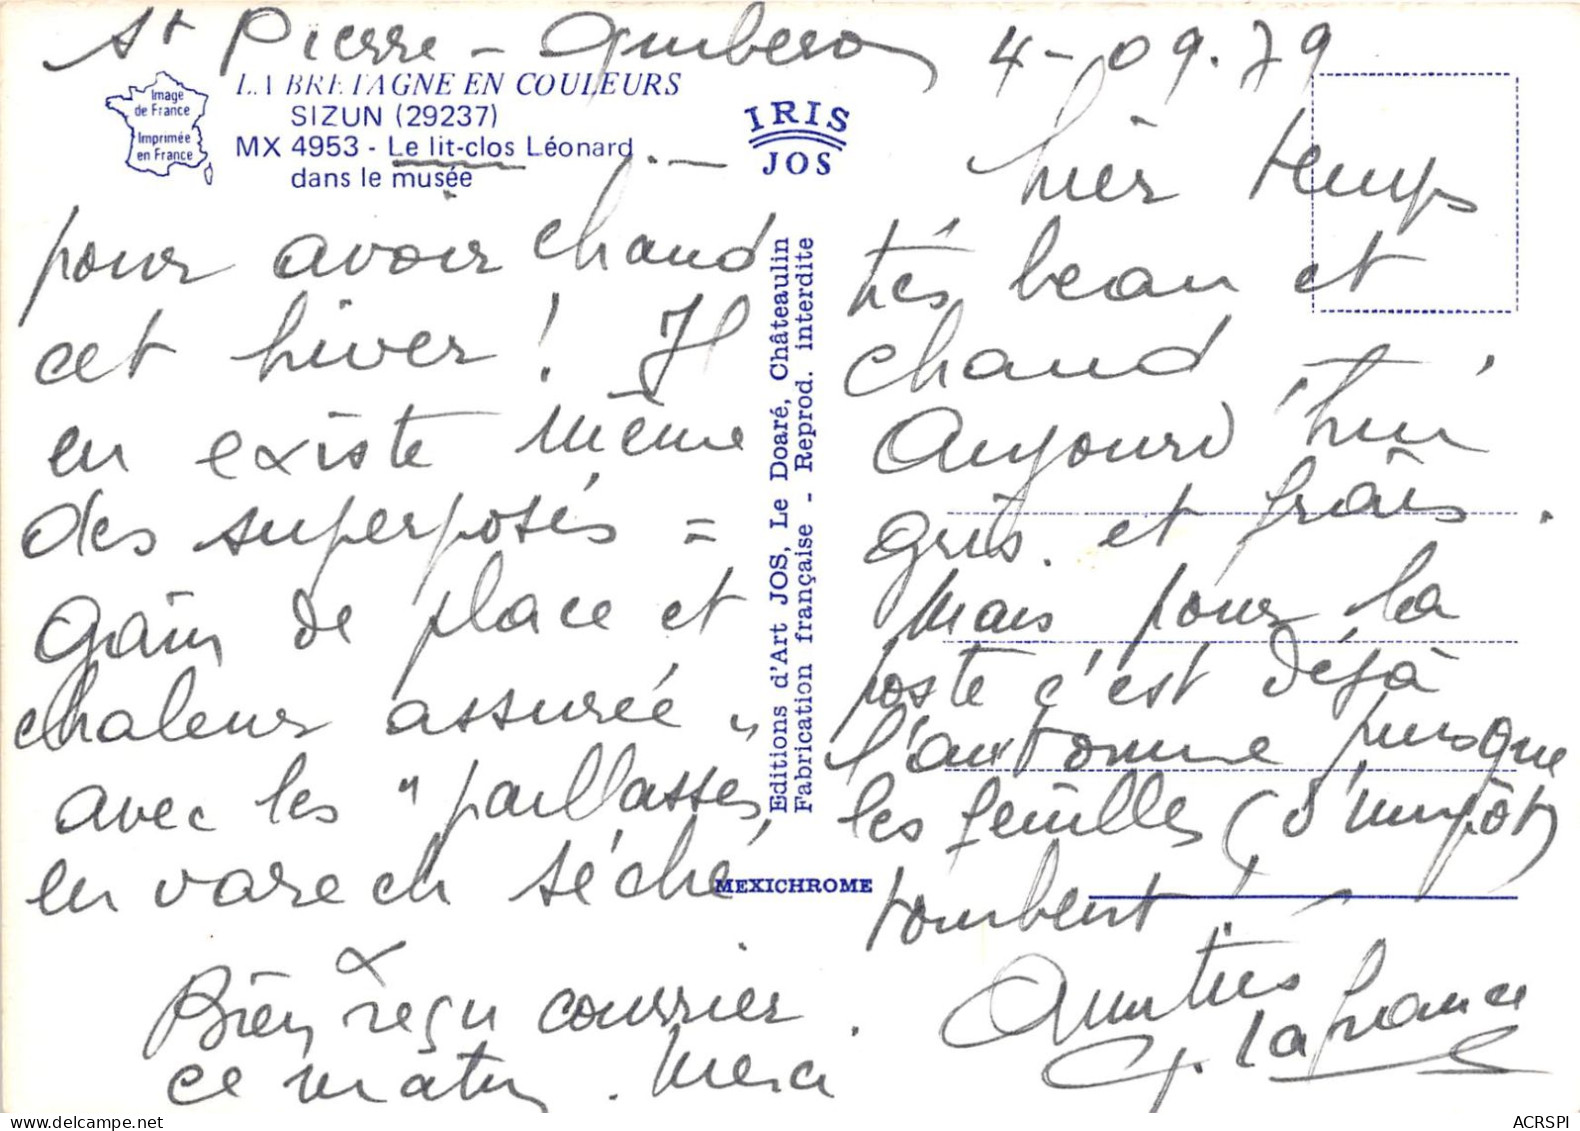 St Pierre - Quiberon 4-09.79
Image
de France
Imprimée
en France
LA BRETAGNE EN COULEURS
SIZUN (29237)
MX 4953 - Le lit-clos Léonard
dans le musée
pour avoir chaud
cet hiver ! Il
en existe même
des superposés =
gain de place et
chaleur assurée
avec les "paillasses"
en varech séché
Bien reçu courrier.
ce matin. Merci
IRIS
JOS
Editions d'Art JOS, Le Doaré, Châteaulin
Fabrication française - Reprod. interdite
MEXICHROME
hier temps
très beau et
chaud
Aujourd'hui
gris et frais.
Mais pour la
poste c'est déjà
l'automne puisque
les feuilles (d'impôt)
tombent !
Amitiés
G. Lafrance
ACRSPI